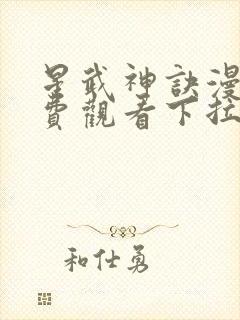 星武神訣漫
費觀看下拉
和仕勇